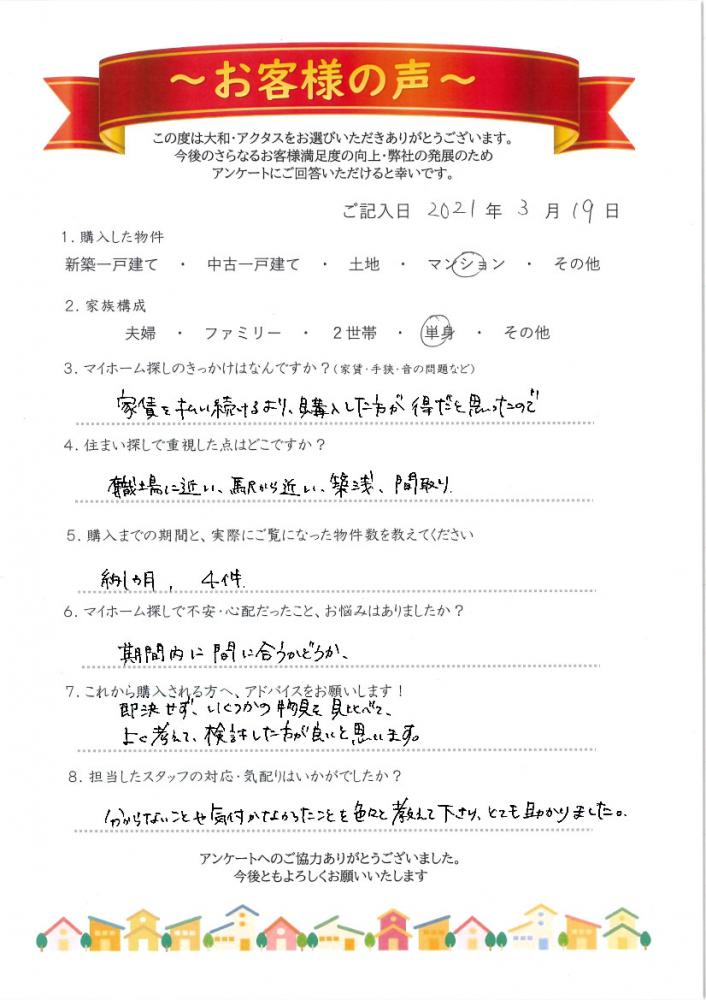 ～お客様の声～
この度は大和・アクタスをお選びいただきありがとうございます。
今後のさらなるお客様満足度の向上・弊社の発展のため
アンケートにご回答いただけると幸いです。
ご記入日 2021 年 3 月 19 日
1. 購入した物件
新築一戸建て ・ 中古一戸建て ・ 土地 ・ マンション ・ その他
2. 家族構成
夫婦 ・ ファミリー ・ 2世帯 ・ 単身 ・ その他
3. マイホーム探しのきっかけはなんですか？(家賃・手狭・音の問題など)
家賃を払い続けるより、購入した方が得だと思ったので
4. 住まい探しで重視した点はどこですか？
職場に近い、駅から近い、築浅、間取り
5. 購入までの期間と、実際にご覧になった物件数を教えてください
約1ヵ月, 4件.
6. マイホーム探しで不安・心配だったこと、お悩みはありましたか？
期間内に間に合うかどうか、
7. これから購入される方へ、アドバイスをお願いします！
即決せず、いくつかの物見を見比べて、
よく考えて、検討した方が良いと思います。
8. 担当したスタッフの対応・気配りはいかがでしたか？
分からないことや気付かなかったことを色々と教えて下さり、とても助かりました。
アンケートへのご協力ありがとうございました。
今後ともよろしくお願いいたします